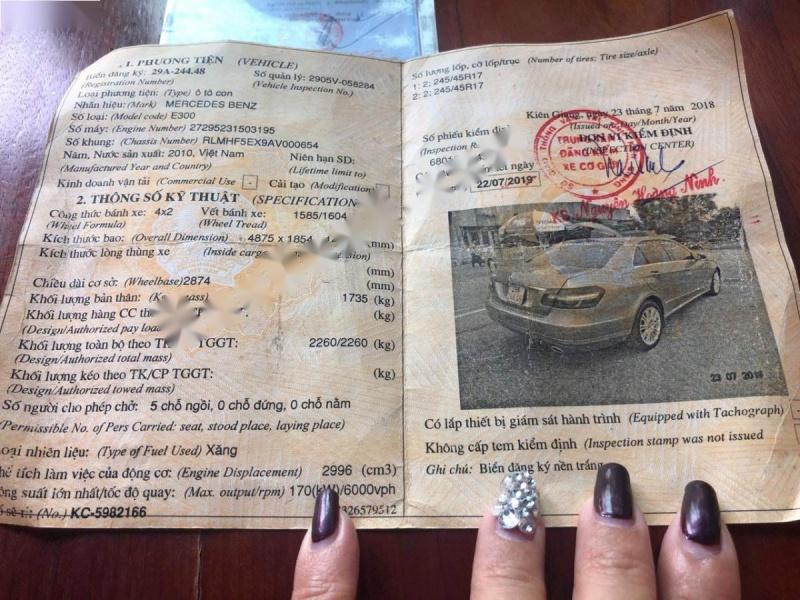 1. PHƯƠNG TIỆN (VEHICLE)
Biển đăng ký: 29A-244.48 Số quản lý: 2905V-058284
(Registration Number) (Vehicle Inspection No.)
Loại phương tiện: (Type) ô tô con
Nhãn hiệu: (Mark) MERCEDES BENZ
Số loại: (Model code) E300
Số máy: (Engine Number) 27295231503195
Số khung: (Chassis Number) RLMHF5EX9AV000654
Năm, Nước sản xuất: 2010, Việt Nam Niên hạn SD:
(Manufactured Year and Country) (Lifetime limit to)
Kinh doanh vận tải (Commercial Use) - Cải tạo (Modification)
2. THÔNG SỐ KỸ THUẬT (SPECIFICATION
Công thức bánh xe: 4x2 Vết bánh xe: 1585/1604
(Wheel Formula) (Wheel Tread)
Kích thước bao: (Overall Dimension) 4875 x 1854 mm)
Kích thước lòng thùng xe (Inside carg ension)
(mm)
Chiều dài cơ sở: (Wheelbase) 2874 (mm)
Khối lượng bản thân: (K mass) 1735 (kg)
Khối lượng hàng CC the (kg)
(Design/Authorized pay loa
Khối lượng toàn bộ theo TK TGGT: 2260/2260 (kg)
(Design/Authorized total mass)
Khối lượng kéo theo TK/CP TGGT: (kg)
(Design/Authorized towed mass)
Số người cho phép chở: 5 chỗ ngồi, 0 chỗ đứng, 0 chỗ nằm
(Permissible No. of Pers Carried: seat, stood place, laying place)
Loại nhiên liệu: (Type of Fuel Used) Xăng
hể tích làm việc của động cơ: (Engine Displacement) 2996 (cm3)
ông suất lớn nhất/tốc độ quay: (Max. output/rpm) 170(kW)/6000vph
(No.) KC-5982166 326579512
Số lượng lốp, cỡ lốp/trục (Number of tires; Tire size/axle)
1: 2: 245/45R17
2: 2: 245/45R17
Kiên Giang, ngày 23 tháng 7 năm 2018
(Issued on: Day/Month/Year)
Số phiếu kiểm định ĐƠN VỊ KIỂM ĐỊNH
(Inspection R (INSPECTION CENTER)
6801
22/07/2019
ĐĂNG KIỂM
XE CƠ GIỚI
KS. Nguyễn Hoàng Ninh
23 07 2018
Có lắp thiết bị giám sát hành trình (Equipped with Tachograph)
Không cấp tem kiểm định (Inspection stamp was not issued
Ghi chú: Biển đăng ký nền trắng